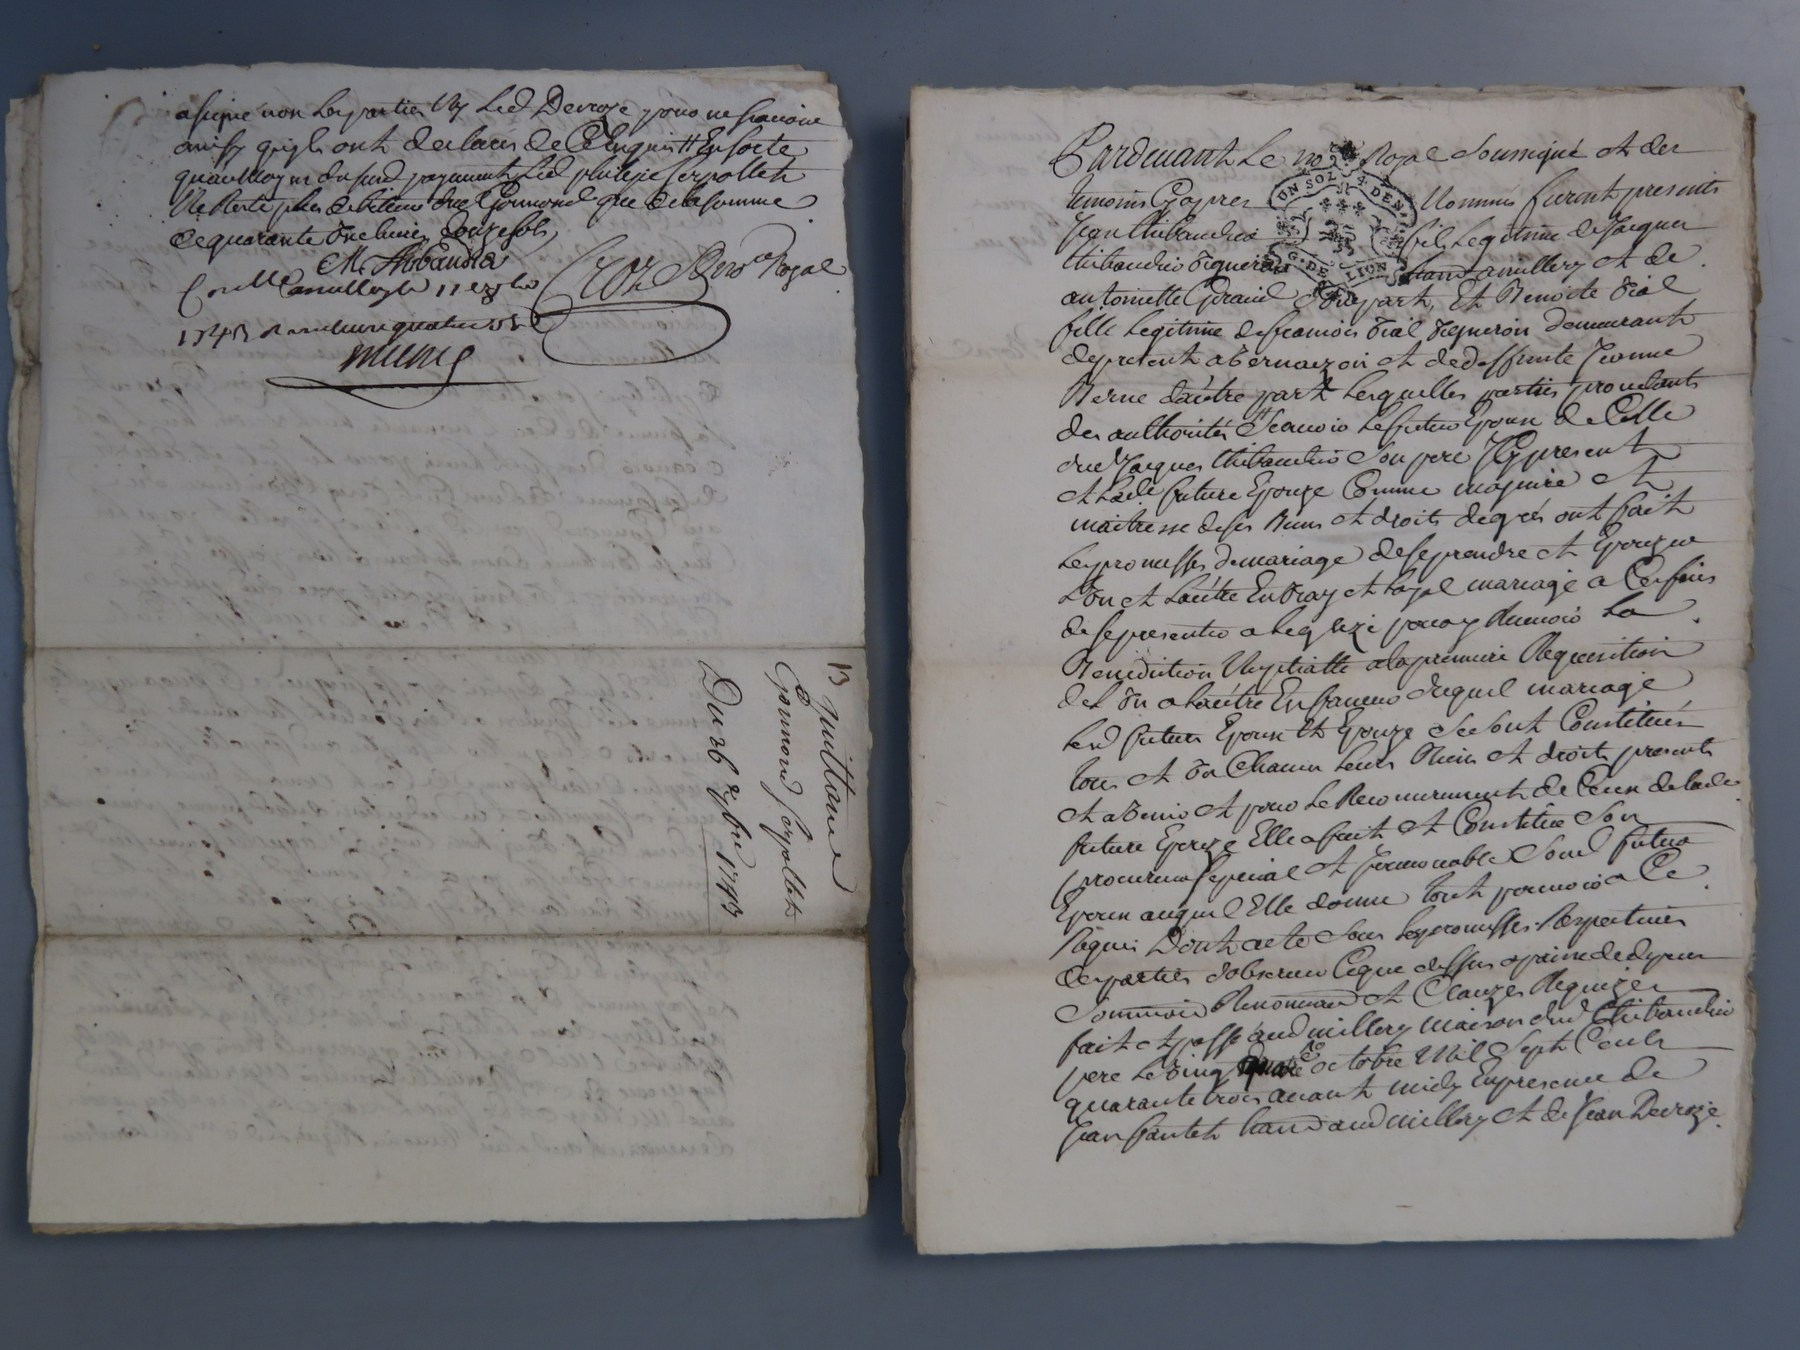 a signé non les parties ny led Devroze pour ne scavoir
ainsy quils ont declarés de ce enquis # En sorte
quau moyen dusurd payement led philipe serpollet
Ne Reste plus debiteur dud Gonnond que de la somme
de quarante une livres douze sols
M. Thibaudier
Croz no.re Royal
1743
13 quittance
Gonnond Serpollet
Du 26 7bre 1743
Pardevant Le no.re Royal Soussigné et des
temoins Cyapres Nommés furent presents
UN SOL 4 DEN.
G. DE LION
Jean thibaudier fils Legitime de Jacques
thibaudier vigneron hant a millery et de
antoinette Giraud d'une part, Et Benoite vial
fille Legitime de francois vial vigneron demeurant
de present a vernaizon et de deffunte Jeanne
Berne d'autre part Lesquelles parties procedants
des authorités Scavoir Le futur Epoux de Celle
dud Jacques thibaudier Son pere Icy present
et Lade future Epouze Comme majeure et
maitresse de ses Biens et droits de gré ont fait
Les promesses de mariage de se prendre et Epouzer
L'un et L'autre En vray et Loyal mariage a Ces fins
de se presenter a Leglize pour y Recevoir La
Benediction Nuptialle a la premiere Requisition
de L'un a L'autre En faveur duquel mariage
Lesd futurs Epoux et Epouze Se sont Constitués
tous et un Chacun Leurs Biens et droits presents
et a venir et pour Le Recouvrement de Ceux de lade
future Epouze Elle a fait et Constitué Son
procureur special et Irrevocable Sond futur
Epoux auquel Elle donne tout pouvoir a Ce
Requis Dont acte Sous Les promesses Respectives
des parties d'observer Ceque dessus a peine de depens
Soumissions Renonciaon et Clauzes Requizes
fait et passé aud millery maison dud thibaudier
pere Le vingt octobre Mil Sept Cents
quarante trois avant midy En presence de
Jean hant aud millery et de Jean Devroze